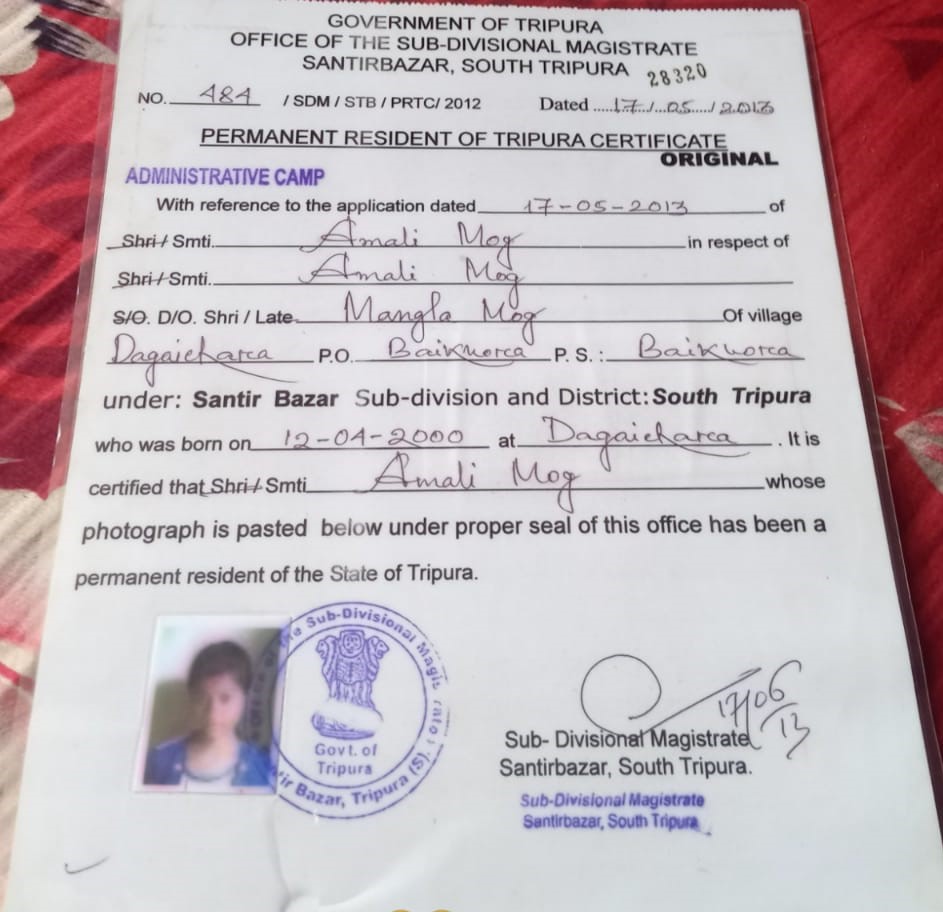 GOVERNMENT OF TRIPURA
OFFICE OF THE SUB-DIVISIONAL MAGISTRATE
SANTIRBAZAR, SOUTH TRIPURA
28320
NO. 484 / SDM / STB / PRTC/ 2012 Dated .....17./...05..../2013
PERMANENT RESIDENT OF TRIPURA CERTIFICATE
ORIGINAL
ADMINISTRATIVE CAMP
With reference to the application dated 17-05-2013 of
Shri / Smti. Amali Mog in respect of
Shri / Smti. Amali Mog
S/O. D/O. Shri / Late Mangla Mog Of village
Dagaicharca P.O. Baikhorca P. S. : Baikhorca
under: Santir Bazar Sub-division and District: South Tripura
who was born on 12-04-2000 at Dagaicharca . It is
certified that Shri / Smti Amali Mog whose
photograph is pasted below under proper seal of this office has been a
permanent resident of the State of Tripura.
the Sub-Divisional Magistrate
Govt. of
Tripura
tir Bazar, Tripura (S).
17/06/13
Sub- Divisional Magistrate
Santirbazar, South Tripura.
Sub-Divisional Magistrate
Santirbazar, South Tripura